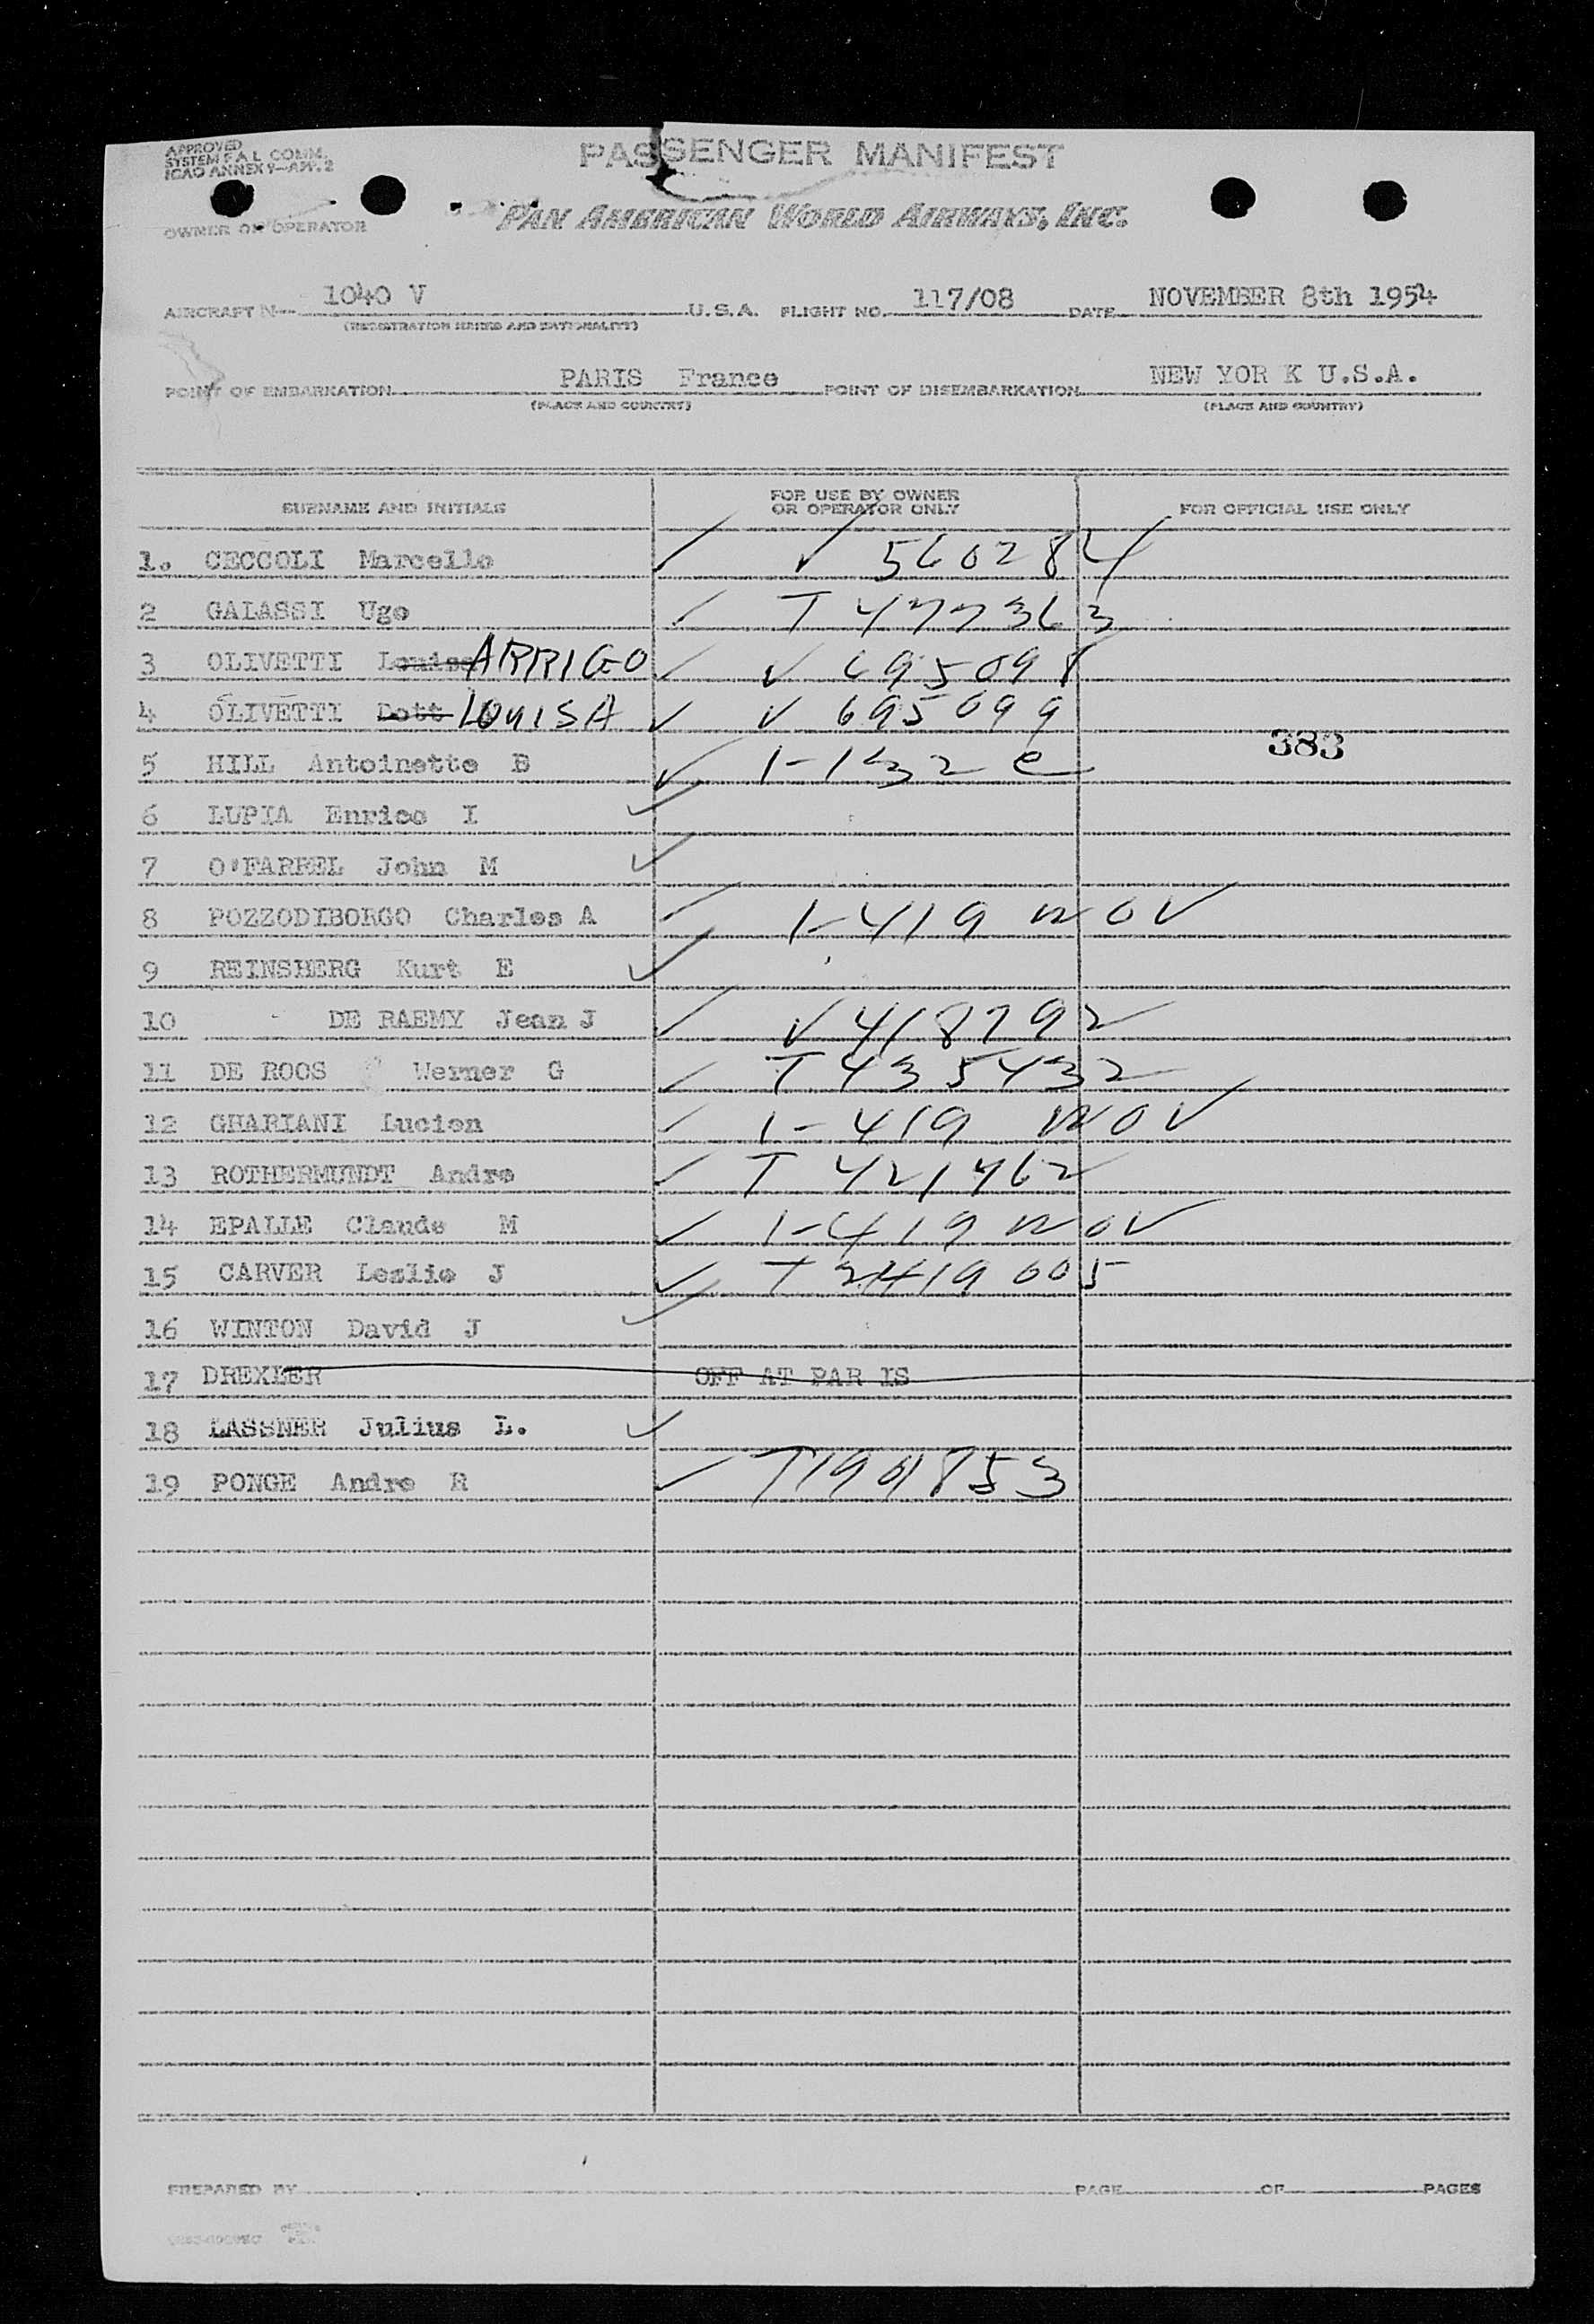 APPROVED
SYSTEM F.A.L. COMM.
ICAO ANNEX 9—APP. 2
PASSENGER MANIFEST
OWNER OR OPERATOR PAN AMERICAN WORLD AIRWAYS, INC.
AIRCRAFT 1040 V U.S.A. FLIGHT NO. 117/08 DATE NOVEMBER 8th 1954
(REGISTRATION MARKS AND NATIONALITY)
POINT OF EMBARKATION PARIS France POINT OF DISEMBARKATION NEW YOR K U.S.A.
(PLACE AND COUNTRY) (PLACE AND COUNTRY)
SURNAME AND INITIALS FOR USE BY OWNER OR OPERATOR ONLY FOR OFFICIAL USE ONLY
1. CECCOLI Marcello ✓ V 560284
2 GALASSI Ugo ✓ T 477363
3 OLIVETTI Louisa ARRIGO ✓ V 695098
4 OLIVETTI Dott LOUISA ✓ V 695099
383
5 HILL Antoinette B ✓ 1-132 e
6 LUPIA Enrico I ✓
7 O'FARREL John M ✓
8 POZZODIBORGO Charles A ✓ 1-419 NOV
9 REINSHERG Kurt E ✓
10 DE RAEMY Jean J ✓ V 418792
11 DE ROOS Werner G ✓ T 435432
12 GHARIANI Lucien ✓ 1-419 NOV
13 ROTHERMUNDT Andre ✓ T 421462
14 EPALLE Claude M ✓ 1-419 NOV
15 CARVER Leslie J ✓ T 2419005
16 WINTON David J ✓
17 DREXLER OFF AT PAR IS
18 LASSNER Julius L. ✓
19 PONGE Andre R ✓ T1901853
PREPARED BY PAGE OF PAGES